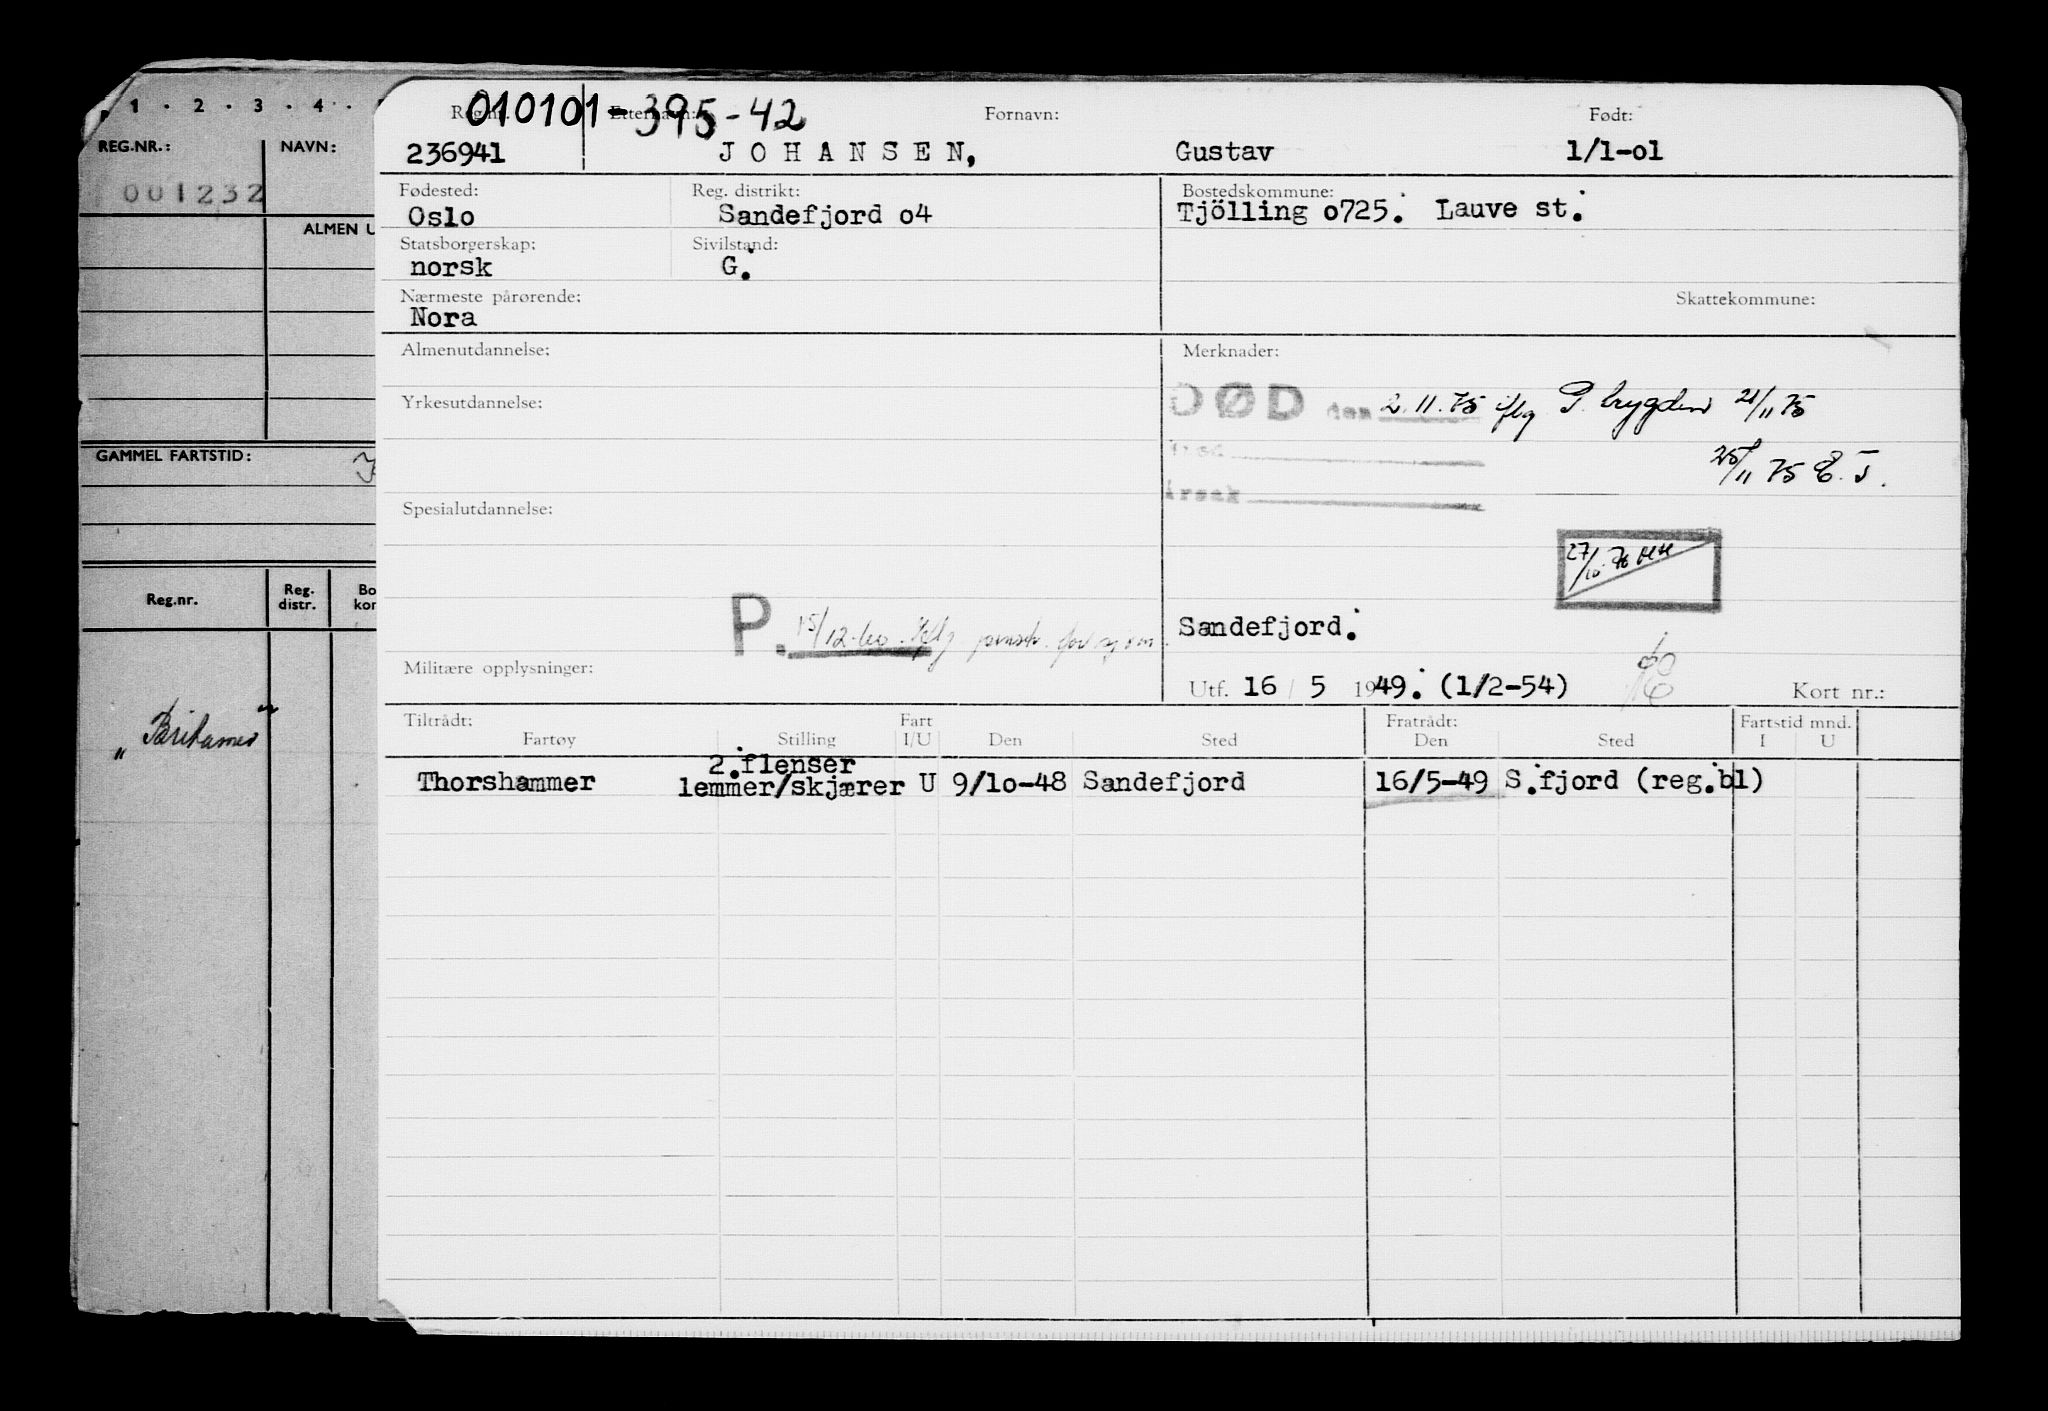 1 · 2 · 3 · 4 ·
REG.NR.:
NAVN:
001232
ALMEN U
GAMMEL FARTSTID:
Reg.nr.
Reg. distr.
Bo
kor
010101-395-42
Reg.nr. Etternavn: Fornavn: Født:
236941 JOHANSEN, Gustav 1/1-o1
Fødested: Reg. distrikt: Bostedskommune:
Oslo Sandefjord o4 Tjölling o725. Lauve st.
Statsborgerskap: Sivilstand:
norsk G.
Nærmeste pårørende: Skattekommune:
Nora
Almenutdannelse: Merknader:
DØD den 2.11.75 iflg 21/11 75
Yrkesutdannelse:
25/11 75 E.T.
årsak
Spesialutdannelse:
27/10.76
P. 15/12.60. Iflg
Sandefjord.
Militære opplysninger:
Utf. 16 / 5 1949. (1/2-54) Kort nr.:
Tiltrådt: Fart Fratrådt: Fartstid mnd.
Fartøy Stilling I/U Den Sted Den Sted I U
2.flenser
Thorshammer lemmer/skjærer U 9/1o-48 Sandefjord 16/5-49 S.fjord (reg.bl)